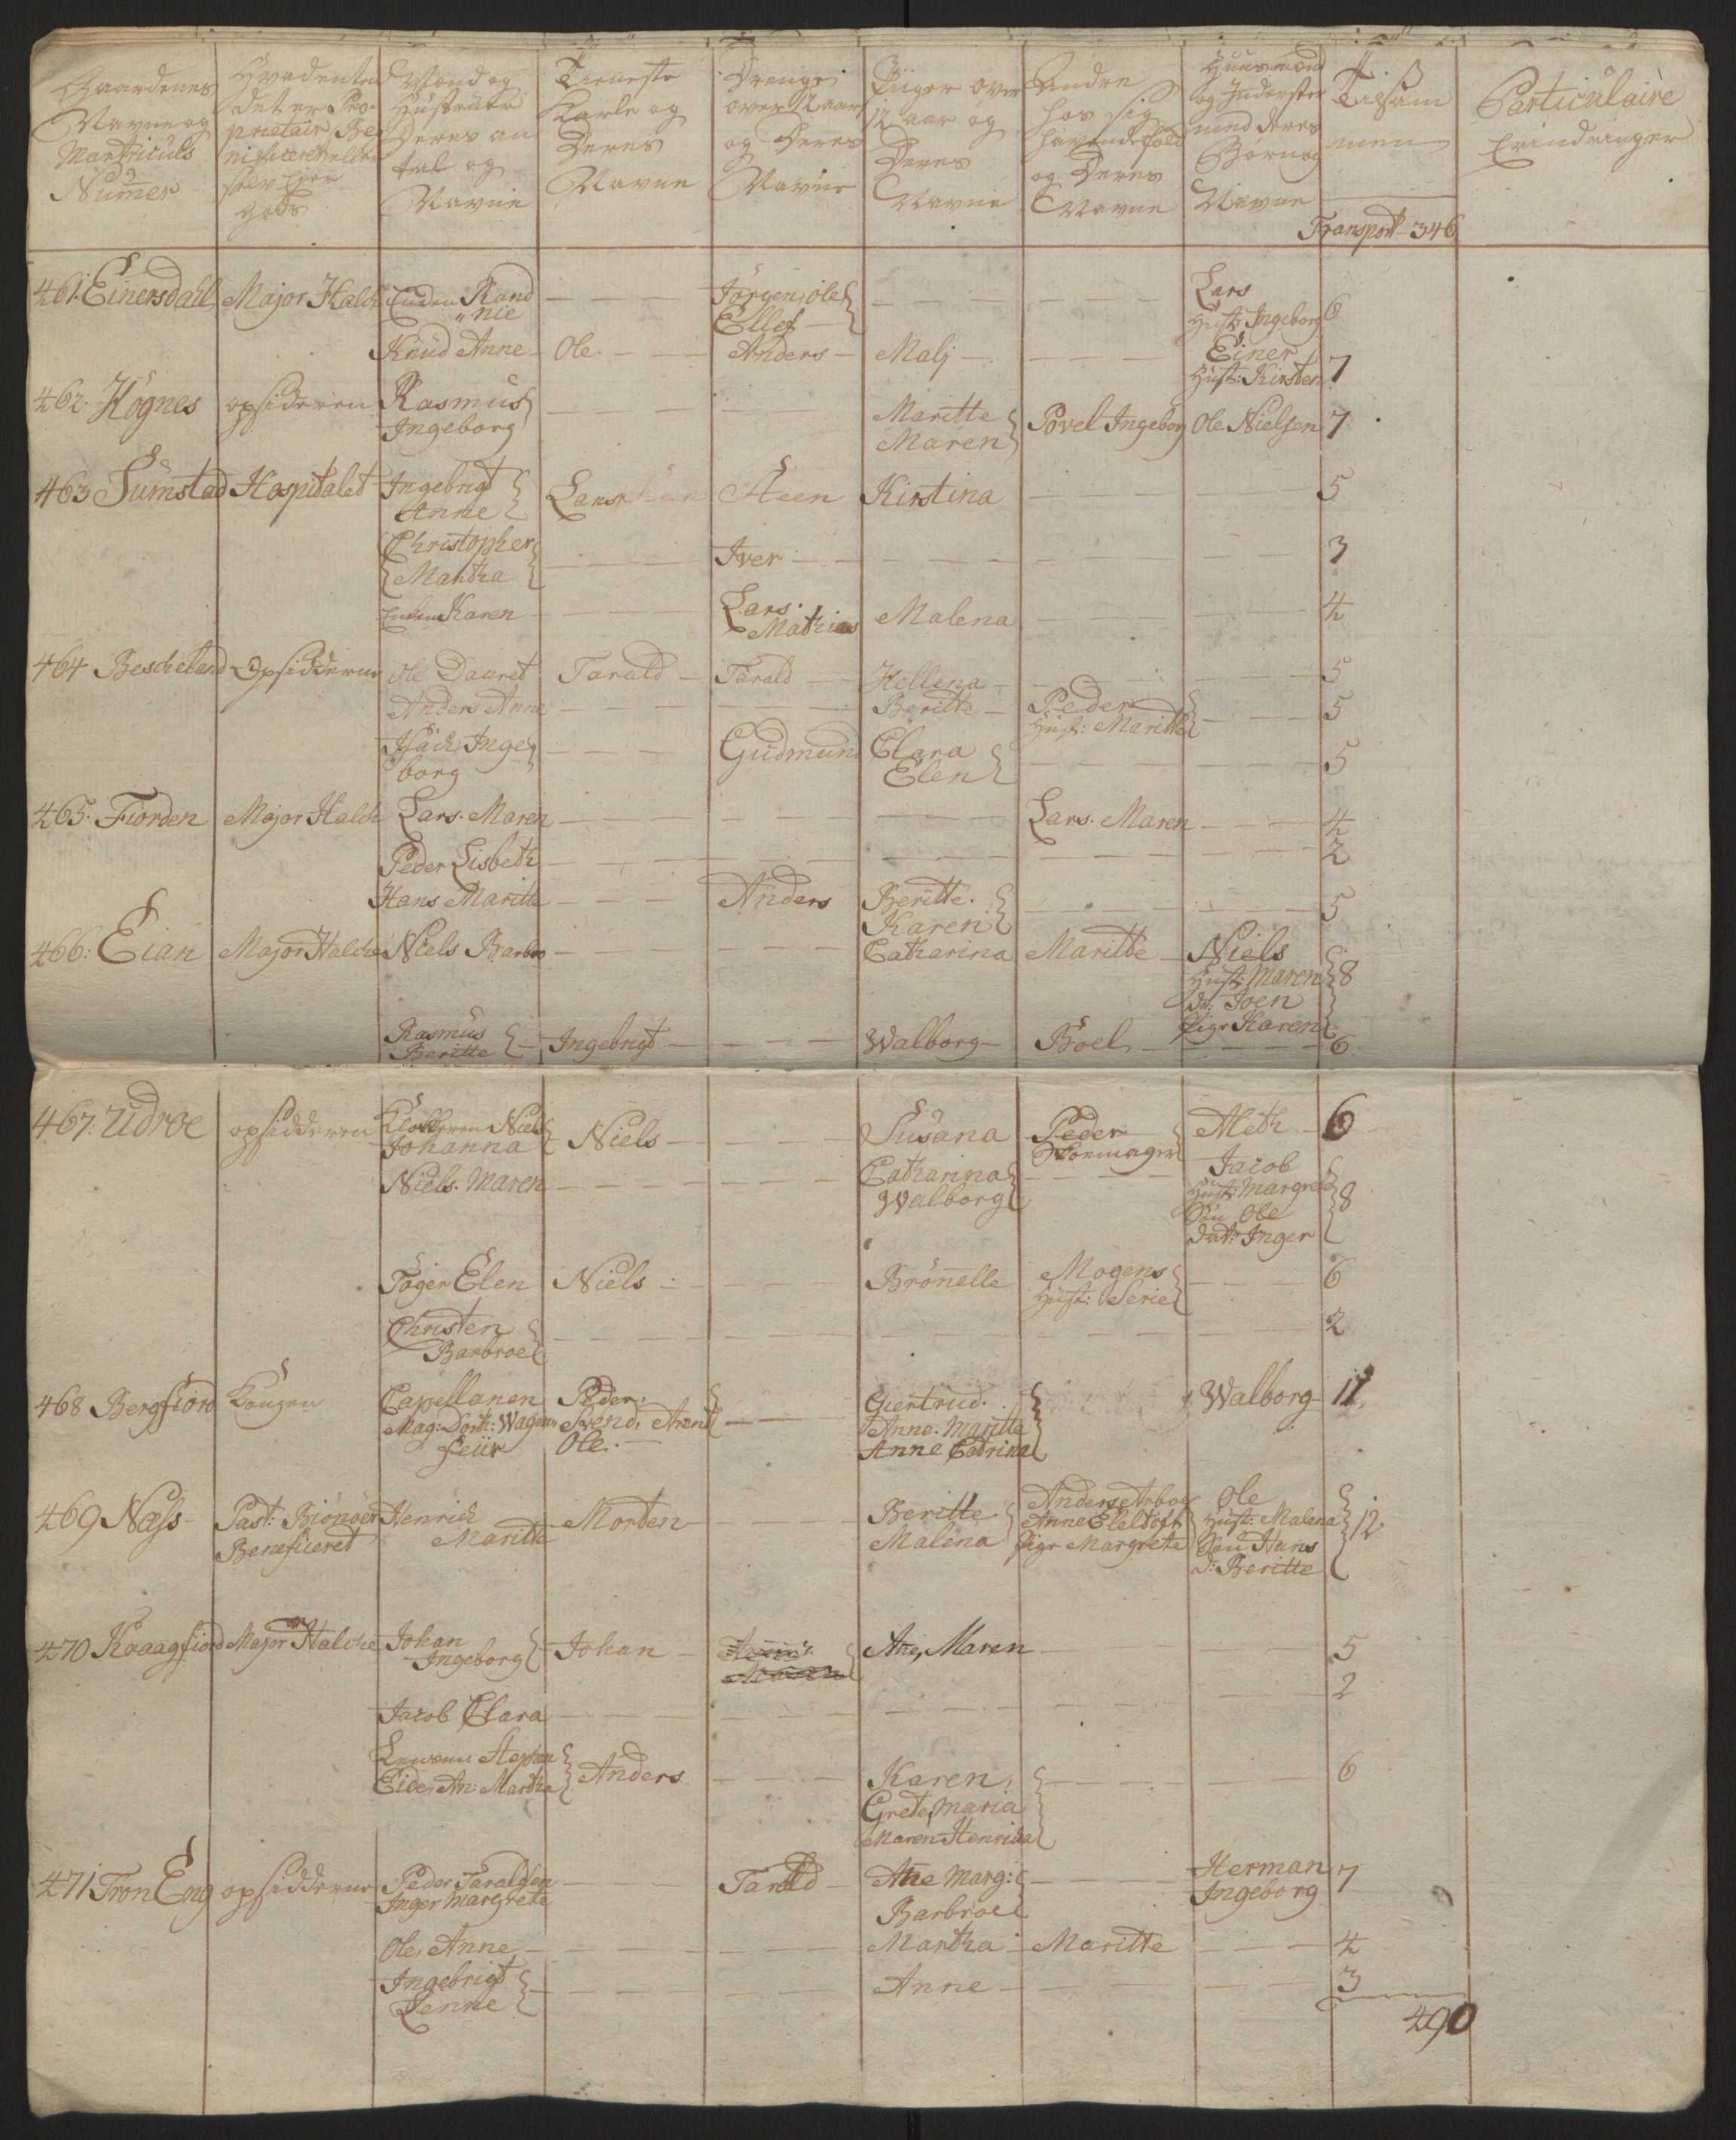 Gaardenes Navne og Martriculs Numer | Hvad enten det er Proprietair, Beneficeret eller selv Eyer gods | Mand og Hustruer Deres antal og Navne | Tieneste Karle og Deres Navne | Drenge over 12 aar og Deres Navne | Piiger over 12 aar og Deres Navne | Andre hos sig havende folk og Deres Navne | Huusmænd og Inderster med deres Børn og Navne | Tilsammen | Particulaire Erindringer
Transport 346
461. Einersdall | Major Halch | Enchen Randnie | — | Jörgen, Ole, Ellef | — | — | Lars Hust: Ingeborg | 6
Knud Anne | Ole | Anders | Malj | — | Einer Hust: Kirsten | 7
462. Högnes | opsideren | Rasmus Ingeborg | — | — | Maritte Maren | Povel Ingeborg | Ole Nielsen | 7
463 Sumstad | Hospitalet | Ingebrigt Anne | Lars | Steen | Kirstina | — | — | 5
Christopher Martha | — | Iver | — | — | — | 3
Enchen Karen | — | Lars. Mathias | Malena | — | — | 4
464 Bescheland | Opsidderne | Ole Dauret | Tarald | Tarald | Hellena | — | — | 5
Anders Anne | — | — | Beritte | Peder Hust: Maritte | — | 5
Isach Ingeborg | — | Gudmund | Clara Elen | — | — | 5
465. Fiorden | Major Halch | Lars. Maren | — | — | — | Lars. Maren | — | 4
Peder Lisbeth | — | — | — | — | — | 2
Hans Maritte | — | Anders | Beritte. Karen | — | — | 5
466: Eian | Major Halche | Niels Barbro | — | — | Catharina | Maritte | Niels Hust: Maren dr: Joen Pige Karen | 8
Rasmus Beritte | Ingebrigt | — | Walborg | Boel | — | 6
467. Udroe | opsidderen | Klokkeren Niels Johanna | Niels | — | Susana | Peder Skoemager | Aleth | 6
Niels. Maren | — | — | Catharina Walborg | — | Jacob Hust: Margrete Søn Ole datr: Inger | 8
Töger Elen | Niels | — | Brönelle | Mogens Hust: Serie | — | 6
Christen Barbroe | — | — | — | — | — | 2
468 Bergfiord | Kongen | Capellanen Mag: Dorth: Wagens feiir | Peder, Svend, Arent Ole. | — | Giertrud. Anne. Maritte Anne Cadrina | Walborg | 11
469 Næss | Past: Biönöer Beneficeret | Henrich Maritte | Morten | — | Beritte Malena | Anders Arboe Anne Eleltoft Pige Margrete | Ole Hust: Malena Søn Hans d: Beritte | 12
470 Kaaagfiord | Major Halche | Johan Ingeborg | Johan | — | Ane, Maren | — | — | 5
Jacob Clara | — | — | — | — | — | 2
Stephan Eide, An: Martha | Anders | — | Karen, Grete, Maria Maren Henrica | — | — | 6
471 Tron Eng | opsidderne | Peder Taraldsen Inger Margrete | — | Tarald | Ane Marg: Barbroe | — | Herman Ingeborg | 7
Ole, Anne | — | — | Martha | Maritte | — | 4
Ingebrigt Lenne | — | — | Anne | — | — | 3
490